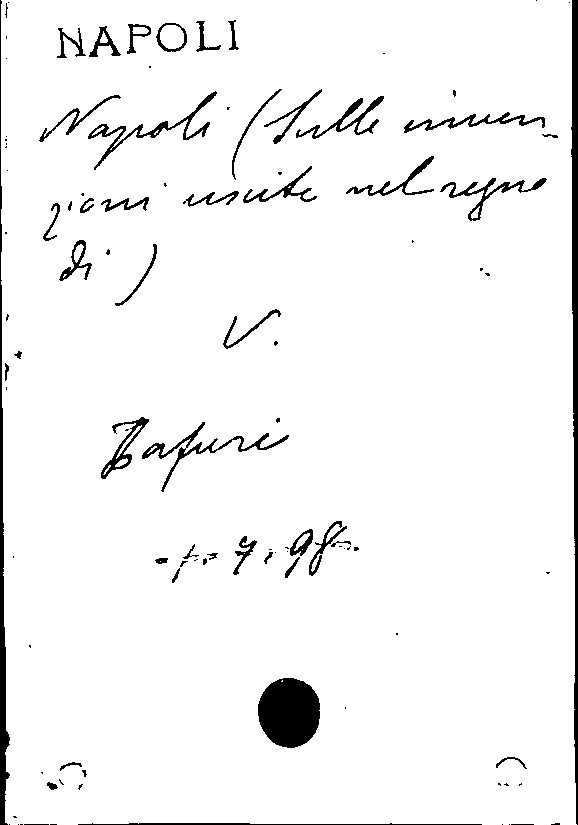 NAPOLI
Napoli (Sulle inven-
zioni uscite nel regno
di)
V.
Tafuri
-1-7.98.